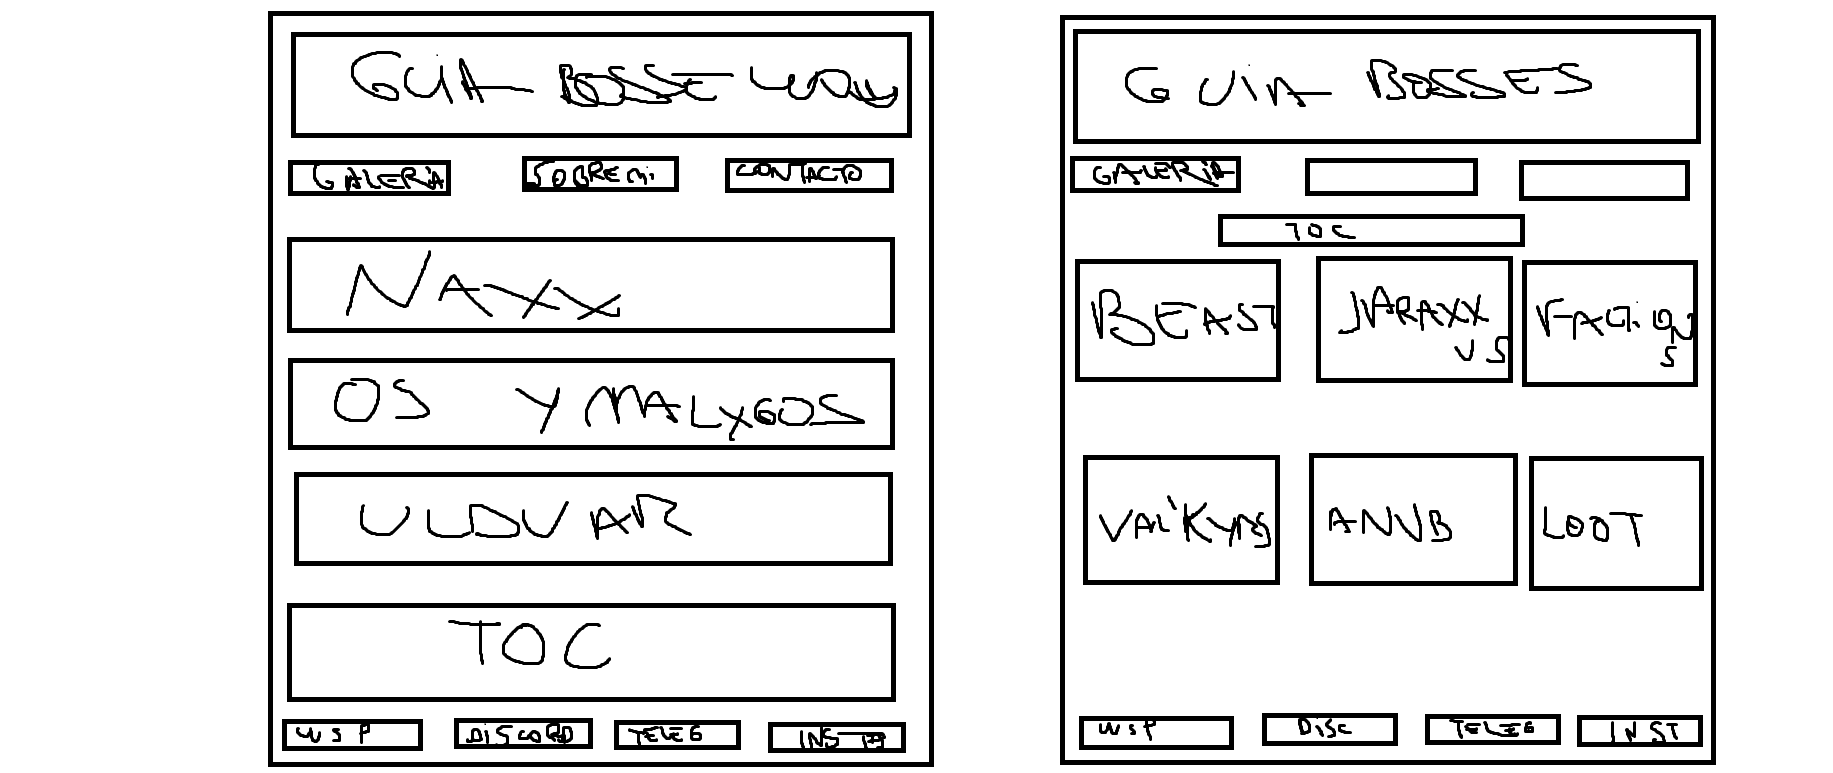 GUIA BOSSE WOW
GALERIA SOBRE mi CONTACTO
NAXX
OS Y MALYGOS
ULDUAR
TOC
WSP DISCORD TELEG INSTA
GUIA BOSSES
GALERIA
TOC
BEAST JARAXXUS FACTIONS
VALKYRS ANUB LOOT
WSP DISC TELEG INST